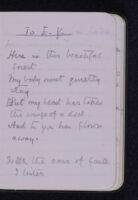 To E. K.
Here in this beautiful
forest
My body must quietly
stay
But my heart has taken
the wings of a dove
And to you has flown
away.
With the cares of
I